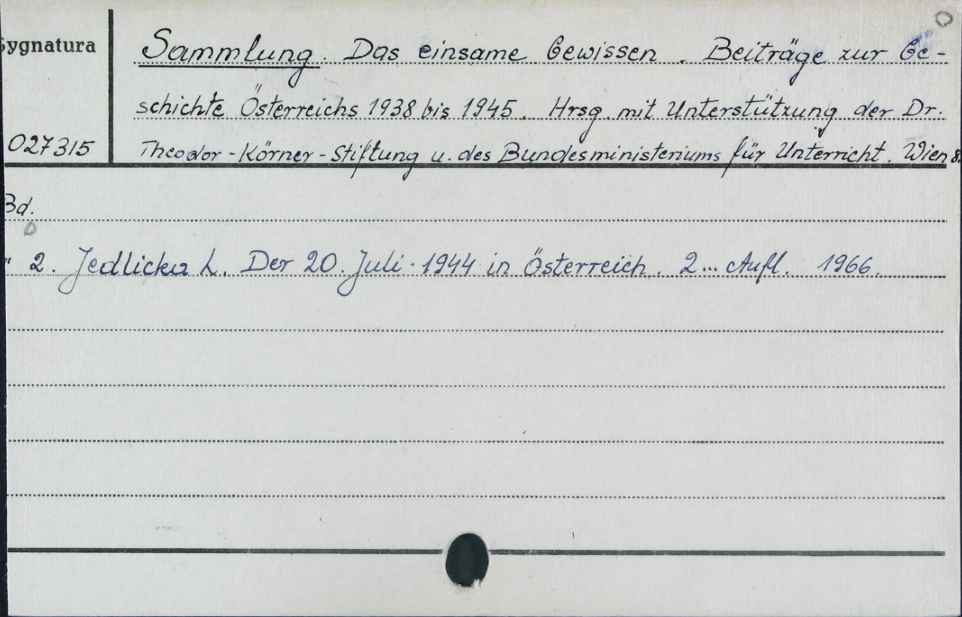 Sygnatura
Sammlung. Das einsame Gewissen. Beiträge zur Ge-
schichte Österreichs 1938 bis 1945. Hrsg. mit Unterstützung der Dr.
027315
Theodor-Körner-Stiftung u. des Bundesministeriums für Unterricht. Wien 8.
Bd.
" 2. Jedlicka L. Der 20. Juli 1944 in Österreich. 2... Aufl. 1966.